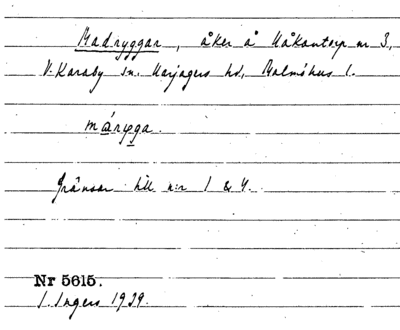 Madryggar, åker å Håkantorp nr 3,
V. Karaby sn. Harjagers hd, Malmöhus l.
máryga.
Gränsar till n:r 1 & 4.
Nr 5615.
I. Ingers 1939.